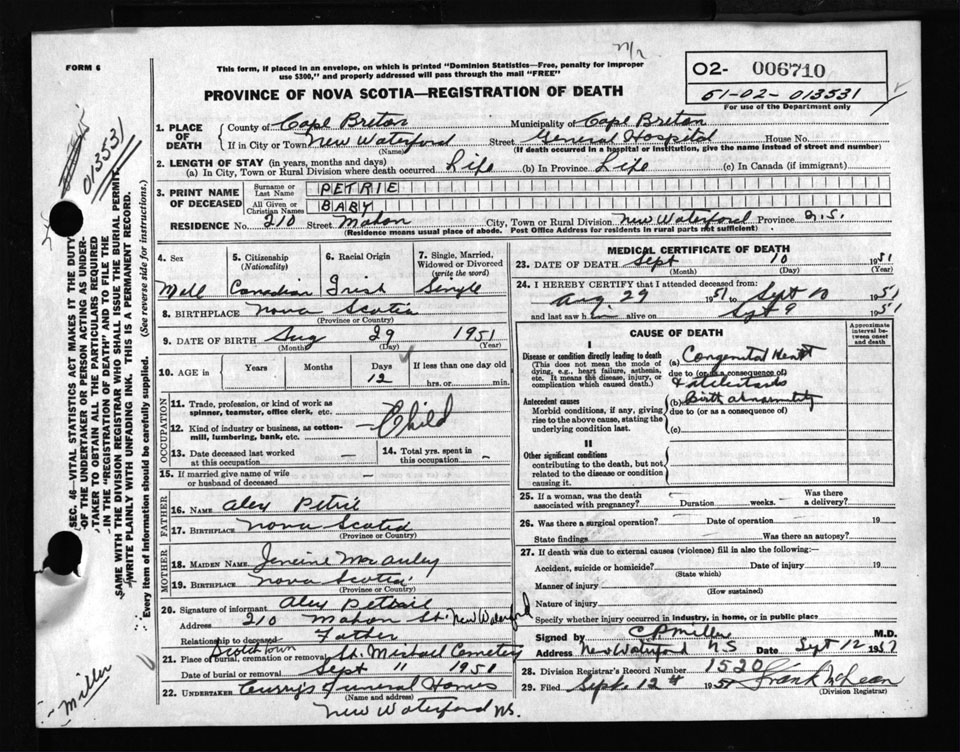 FORM 6
This form, if placed in an envelope, on which is printed "Dominion Statistics—Free, penalty for improper
use $300," and properly addressed will pass through the mail "FREE"
PROVINCE OF NOVA SCOTIA—REGISTRATION OF DEATH
O2- 006710
51-02-013531
For use of the Department only
013531
SEC. 46—VITAL STATISTICS ACT MAKES IT THE DUTY
OF THE UNDERTAKER OR PERSON ACTING AS UNDER-
TAKER TO OBTAIN ALL THE PARTICULARS REQUIRED
IN THE "REGISTRATION OF DEATH" AND TO FILE THE
SAME WITH THE DIVISION REGISTRAR WHO SHALL ISSUE THE BURIAL PERMIT.
WRITE PLAINLY WITH UNFADING INK. THIS IS A PERMANENT RECORD.
Every item of information should be carefully supplied. (See reverse side for instructions.)
Miller
1. PLACE OF DEATH
County of Cape Breton Municipality of Cape Breton
If in City or Town New Waterford Street General Hospital House No.
(Name) (If death occurred in a hospital or institution, give the name instead of street and number)
2. LENGTH OF STAY (in years, months and days)
(a) In City, Town or Rural Division where death occurred Life (b) In Province Life (c) In Canada (if immigrant)
3. PRINT NAME OF DECEASED
Surname or Last Name PETRIE
All Given or Christian Names BABY
RESIDENCE No. 210 Street Mahon City, Town or Rural Division New Waterford Province N.S.
(Residence means usual place of abode. Post Office Address for residents in rural parts not sufficient)
4. Sex 5. Citizenship (Nationality) 6. Racial Origin 7. Single, Married, Widowed or Divorced (write the word)
Mall Canadian Irish Single
8. BIRTHPLACE Nova Scotia
(Province or Country)
9. DATE OF BIRTH Aug 29 1951
(Month) (Day) (Year)
10. AGE in Years Months Days If less than one day old
12 hrs. or min.
OCCUPATION
11. Trade, profession, or kind of work as
spinner, teamster, office clerk, etc.
12. Kind of industry or business, as cotton-
mill, lumbering, bank, etc. Child
13. Date deceased last worked at this occupation —
14. Total yrs. spent in this occupation —
15. If married give name of wife
or husband of deceased —
FATHER
16. NAME Alex Petrie
17. BIRTHPLACE Nova Scotia
(Province or Country)
MOTHER
18. MAIDEN NAME
19. BIRTHPLACE Nova Scotia
(Province or Country)
20. Signature of informant Alex
Address 210 Mahon St. New Waterford
Relationship to deceased Father
Scotchtown
21. Place of burial, cremation or removal St. Michael Cemetery
Date of burial or removal Sept 11 1951
22. UNDERTAKER Curry's Funeral Homes
(Name and address)
New Waterford NS.
MEDICAL CERTIFICATE OF DEATH
23. DATE OF DEATH Sept 10 1951
(Month) (Day) (Year)
24. I HEREBY CERTIFY that I attended deceased from:
Aug 29 1951 to Sept 10 1951
and last saw h alive on Sept 9 1951
CAUSE OF DEATH
Approximate interval between onset and death
I
Disease or condition directly leading to death
(This does not mean the mode of
dying, e.g., heart failure, asthenia,
etc. It means the disease, injury, or
complication which caused death.)
(a) Congenital Heart
due to (or as a consequence of)
& atelectasis
Antecedent causes
Morbid conditions, if any, giving
rise to the above cause, stating the
underlying condition last.
(b) Birth abnormality
due to (or as a consequence of)
(c)
II
Other significant conditions
contributing to the death, but not
related to the disease or condition
causing it.
25. If a woman, was the death
associated with pregnancy? Duration weeks. Was there a delivery?
26. Was there a surgical operation? Date of operation 19
State findings Was there an autopsy?
27. If death was due to external causes (violence) fill in also the following:—
Accident, suicide or homicide? Date of injury 19
(State which)
Manner of injury
(How sustained)
Nature of injury
Specify whether injury occurred in industry, in home, or in public place
Signed by C P Miller M.D.
Address New Waterford NS Date Sept 12 1951
28. Division Registrar's Record Number 1520
29. Filed Sept 12th 1951 Frank McLean
(Division Registrar)